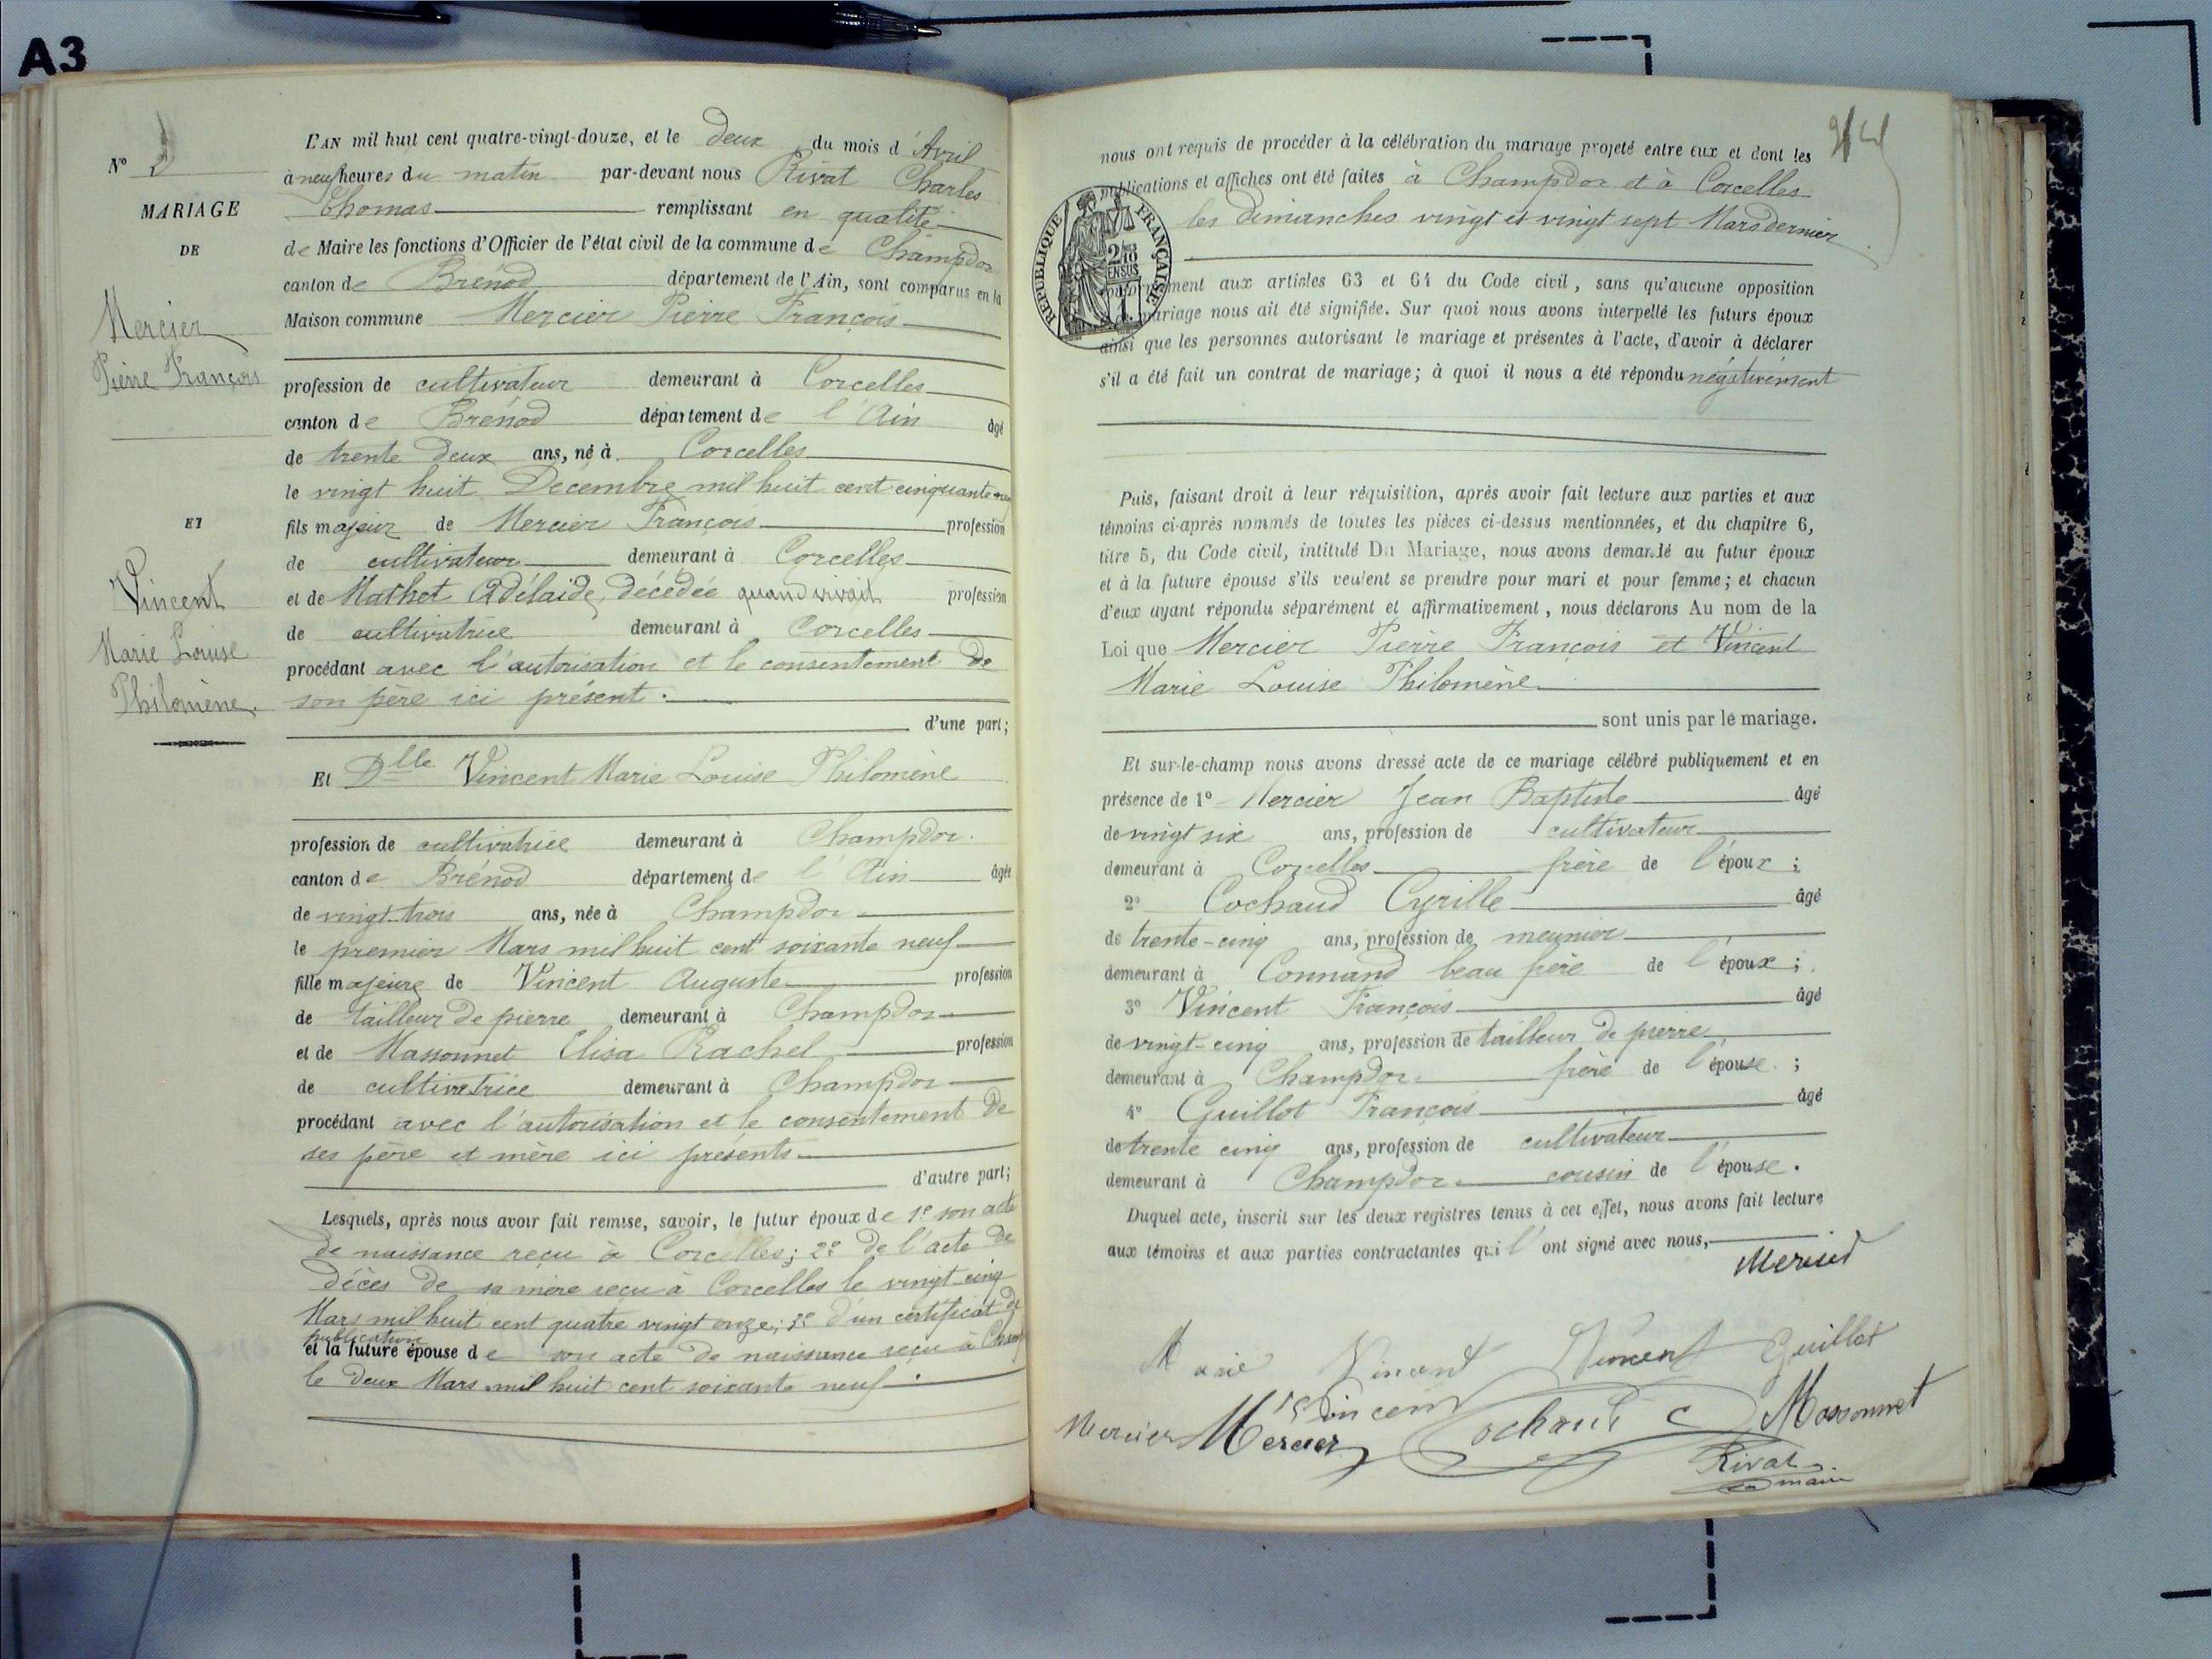 A3
L'AN mil huit cent quatre-vingt-douze, et le deux du mois d'Avril
N° 2
à neuf heures du matin par-devant nous Rivat Charles
MARIAGE
Thomas remplissant en qualité
DE
de Maire les fonctions d'Officier de l'état civil de la commune de Champdor
canton de Brénod département de l'Ain, sont comparus en la
Mercier
Maison commune Mercier Pierre François
Pierre François
profession de cultivateur demeurant à Corcelles
canton de Brénod département de l'Ain âgé
de trente deux ans, né à Corcelles
le vingt huit Décembre mil huit cent cinquante neuf
ET
fils majeur de Mercier François profession
de cultivateur demeurant à Corcelles
Vincent
et de Mathet Adélaïde, décédée quand vivait profession
de cultivatrice demeurant à Corcelles
Marie Louise
procédant avec l'autorisation et le consentement de
Philomène.
son père ici présent.
d'une part;
Et Dlle Vincent Marie Louise Philomène
profession de cultivatrice demeurant à Champdor.
canton de Brénod département de l'Ain âgée
de vingt-trois ans, née à Champdor
le premier Mars mil huit cent soixante neuf
fille majeure de Vincent Auguste profession
de tailleur de pierre demeurant à Champdor
et de Massonnet Elisa Rachel profession
de cultivatrice demeurant à Champdor
procédant avec l'autorisation et le consentement de
ses père et mère ici présents.
d'autre part;
Lesquels, après nous avoir fait remise, savoir, le futur époux de 1° son acte
de naissance reçu à Corcelles; 2° de l'acte de
décès de sa mère reçu à Corcelles le vingt-cinq
Mars mil huit cent quatre vingt onze; 3° d'un certificat de
publication
et la future épouse de son acte de naissance reçu à Champ
le deux Mars mil huit cent soixante neuf.
nous ont requis de procéder à la célébration du mariage projeté entre eux et dont les
publications et affiches ont été faites à Champdor et à Corcelles
les dimanches vingt et vingt sept Mars dernier
RÉPUBLIQUE FRANÇAISE
2/10
EN SUS
conformément aux articles 63 et 64 du Code civil, sans qu'aucune opposition
mariage nous ait été signifiée. Sur quoi nous avons interpellé les futurs époux
ainsi que les personnes autorisant le mariage et présentes à l'acte, d'avoir à déclarer
s'il a été fait un contrat de mariage; à quoi il nous a été répondu négativement
Puis, faisant droit à leur réquisition, après avoir fait lecture aux parties et aux
témoins ci-après nommés de toutes les pièces ci-dessus mentionnées, et du chapitre 6,
titre 5, du Code civil, intitulé Du Mariage, nous avons demandé au futur époux
et à la future épouse s'ils veulent se prendre pour mari et pour femme; et chacun
d'eux ayant répondu séparément et affirmativement, nous déclarons Au nom de la
Loi que Mercier Pierre François et Vincent
Marie Louise Philomène
sont unis par le mariage.
Et sur-le-champ nous avons dressé acte de ce mariage célébré publiquement et en
présence de 1° Mercier Jean Baptiste âgé
de vingt six ans, profession de cultivateur
demeurant à Corcelles frère de l'époux;
2° Cochaud Cyrille âgé
de trente-cinq ans, profession de meunier
demeurant à Connand beau frère de l'époux;
3° Vincent François âgé
de vingt-cinq ans, profession de tailleur de pierre
demeurant à Champdor frère de l'épouse;
4° Guillot François âgé
de trente cinq ans, profession de cultivateur
demeurant à Champdor cousin de l'épouse.
Duquel acte, inscrit sur les deux registres tenus à cet effet, nous avons fait lecture
aux témoins et aux parties contractantes qui l'ont signé avec nous,
Mercier
Marie Vincent Vincent Guillot
Vincent
Mercier Mercier Cochaud C Massonnet
Rivat
maire